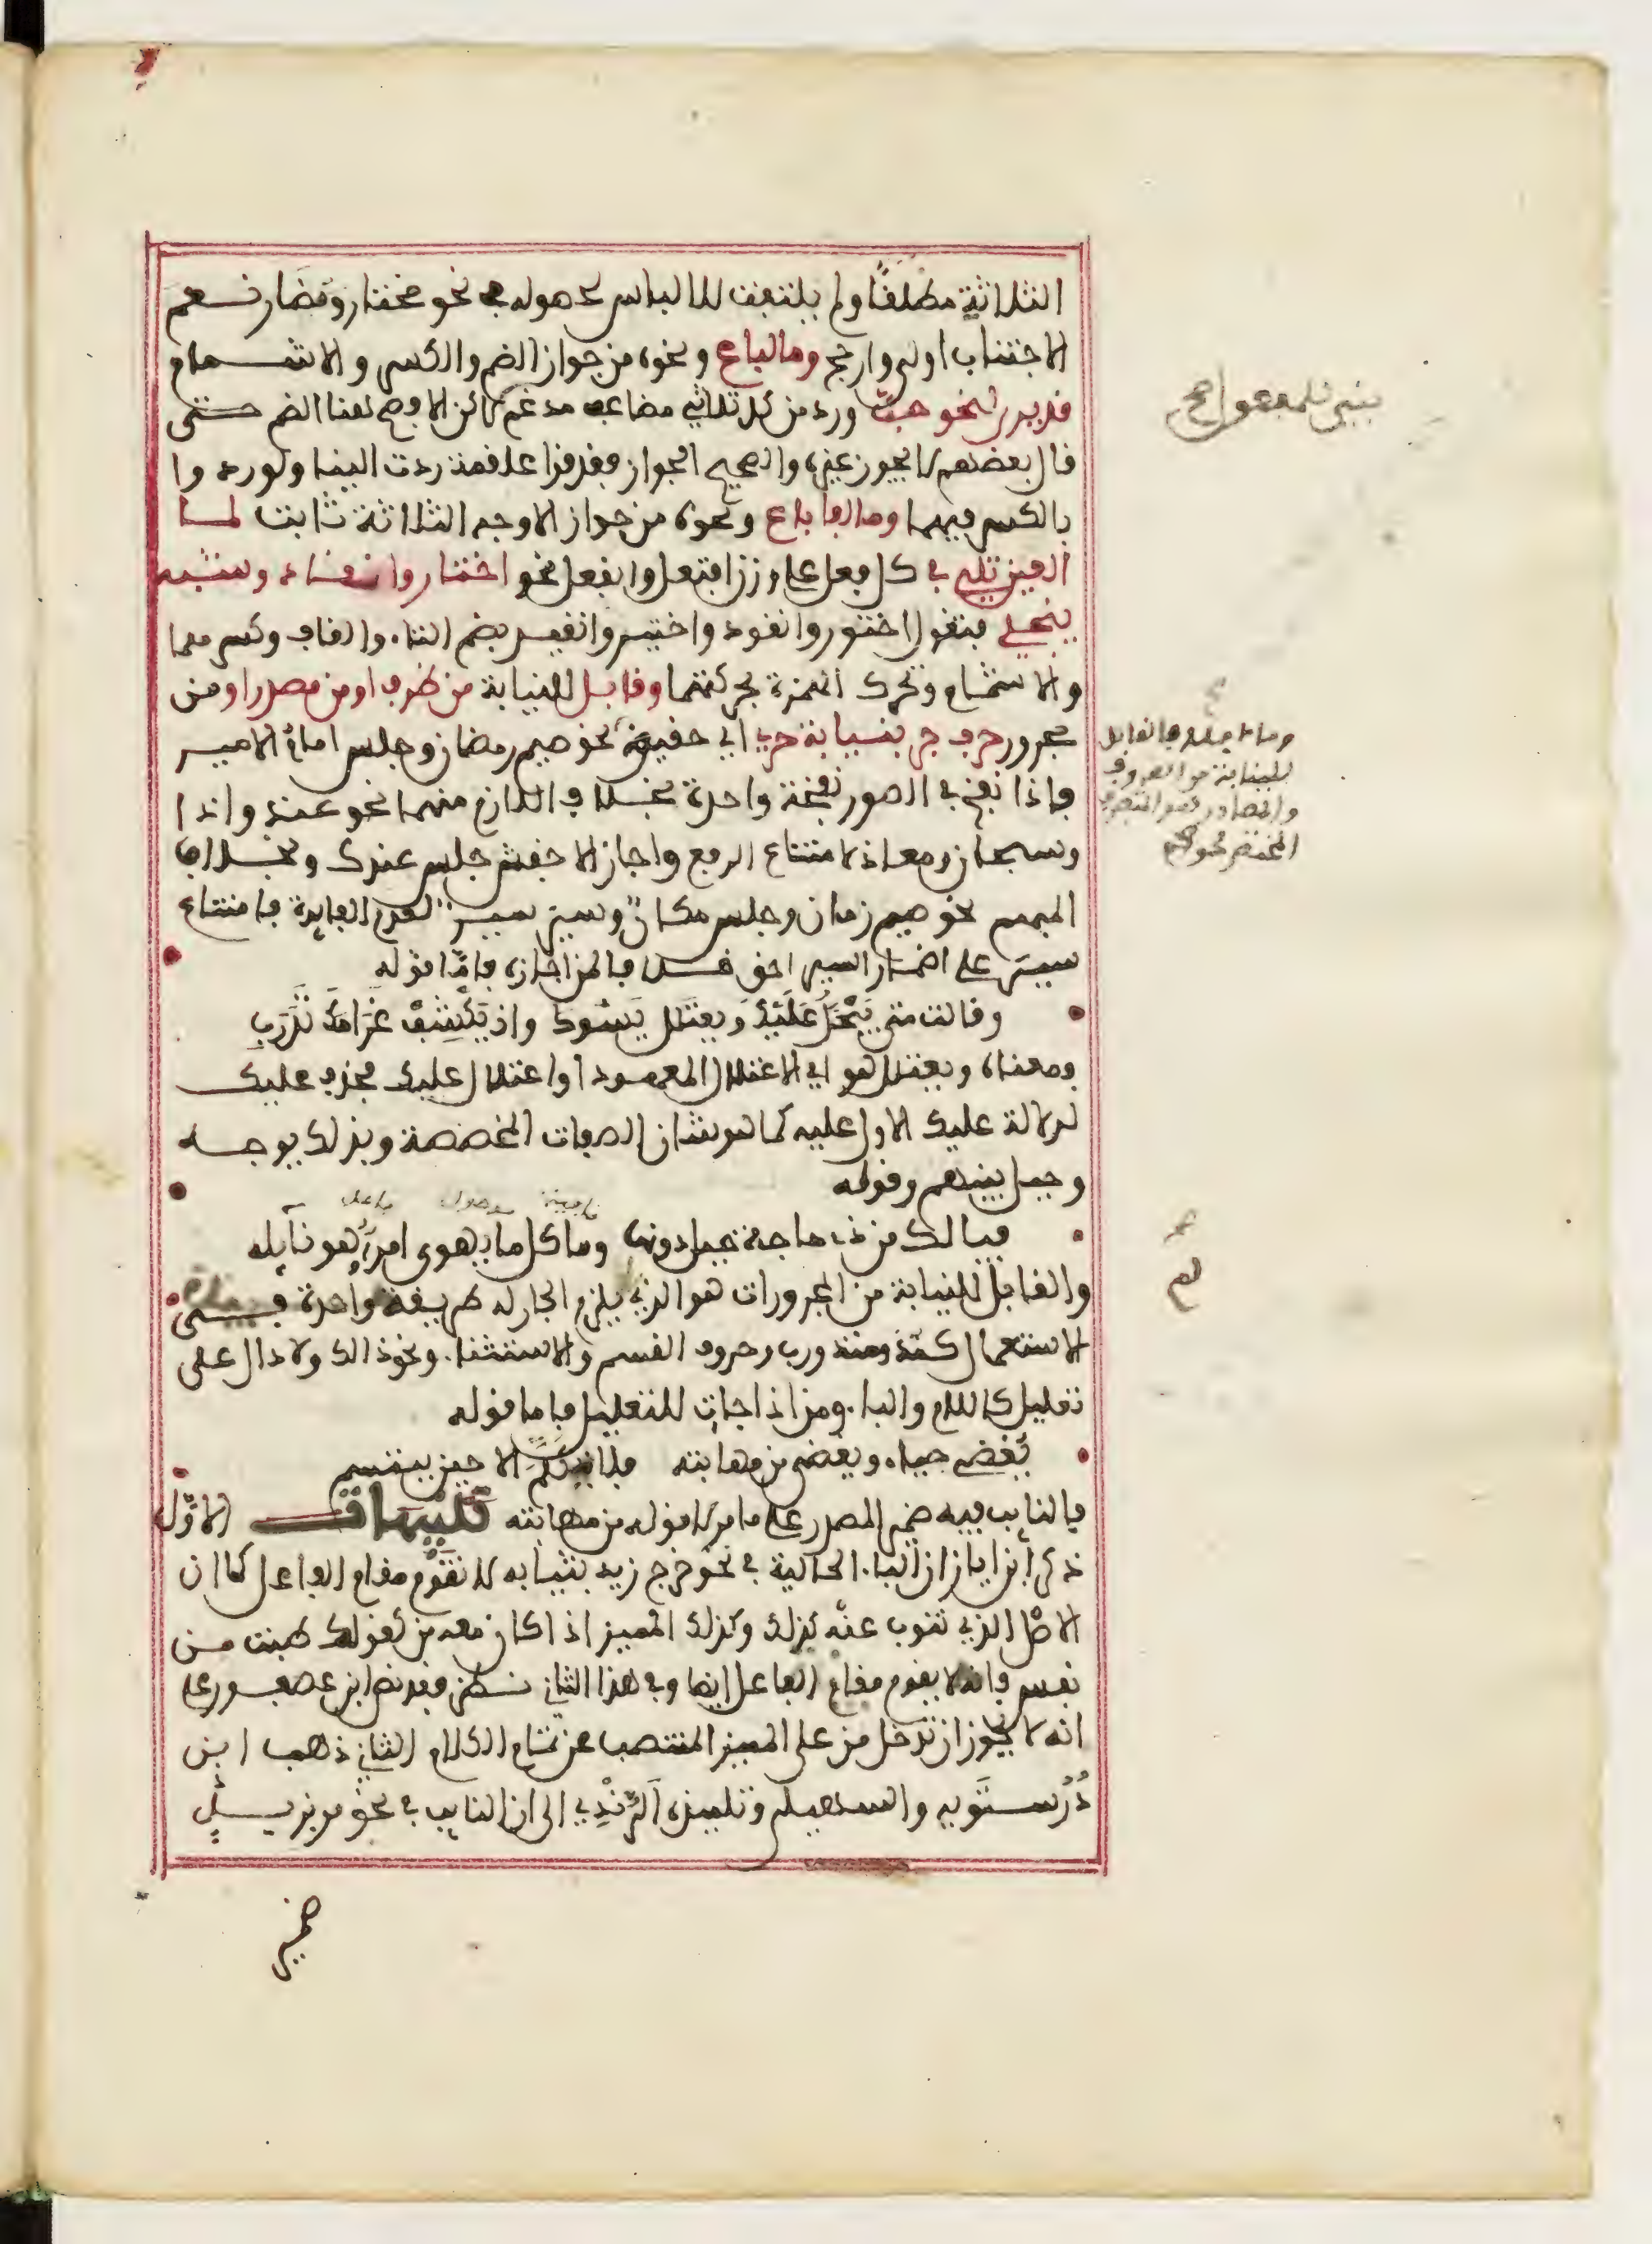 الثلاثة مطلقا ولم يلتفت للالباس لحصوله في نحو مختار وتضار نعم
الاجتناب اولى وارجح وما لباع ونحوه من جواز الضم والكسر والاشمام
قد يرى لنحو حبّ ورد من كل ثلاثي مضاعف مدغم لاكن الاوجح هنا الضم حتى
قال بعضهم لا يجوز غيره والصحيح الجواز فقد قرا علقمة ردت الينا ولو ردوا
بالكسر فيهما وما لفا باع ونحوه من جواز الاوجه الثلاثة ثابت لما
العين تلي في كل فعل على وزن افتعل وانفعل نحو اختار وانقاد وشبه
ينجلي فتقول اختور وانقود واختير وانقيد بضم التاء والقاف وكسرهما
والاشمام وتحرك الهمزة بحركتها وقابل للنيابة من ظرف او من مصدر او من
مجرور حرف جر بنيابة حري اي حقيق نحو صيم رمضان وجلس امام الامير
فاذا نفخ في الصور نفخة واحدة بخلاف اللازم منهما نحو عند واذا
وسبحان ومعاذ لامتناع الرفع واجاز الاخفش جلس عندك وبخلاف
المبهم نحو صيم زمان وجلس مكان وسير سير لعدم الفايدة فامتناع
سير على اضمار السير احق خلافا لمن اجازه فاما قوله
وقالت متى يبخل عليك ويعتلل يسوك وان يكشف غرامك تدرب
فمعناه ويعتلل هو اي الاعتلال المعهود او اعتلال عليك فحذف عليك
لدلالة عليك الاول عليه كما هو شان الصفات المخصصة وبذلك يوجه
وحيل بينهم وقوله
نافية موصول فاعل
فيا لك من ذي حاجة حيل دونها وما كل ما يهوى امرؤ هو نايله
والقابل للنيابة من المجرورات هو الذي لم يلزم الجار له طريقة واحدة في
الاستعمال كمذ ومنذ ورب وحروف القسم والاستثنا ونحو ذالك ولا دال على
تعليل كاللام والبا ومن اذا جات للتعليل فاما قوله
يغضي حياء ويغضى من مهابته فلا يكلم الا حين يبتسم
فالنايب فيه ضمير المصدر على ما مر لا قوله من مهابته تنبيهات الاول
ذكر ابن اياز ان البا الحالية في نحو خرج زيد بثيابه لا تقوم مقام الفاعل كما ان
الاصل الذي تنوب عنه كذلك وكذلك المميز اذا كان معه من كقولك طبت من
نفس فانه لا يقوم مقام الفاعل ايضا وفي هذا الثاني نظر فقد نص ابن عصفور على
انه لا يجوز ان تدخل من على المميز المنتصب عن تمام الكلام الثاني ذهب ابن
دُرُستَوَيه والسهيلي وتلميذه الرُّنْدِي الى ان النايب في نحو مر بزيد
ضمير
وما
للنيابة من الظروف
والمصادر هو المتصرف
المختص نحو صيم